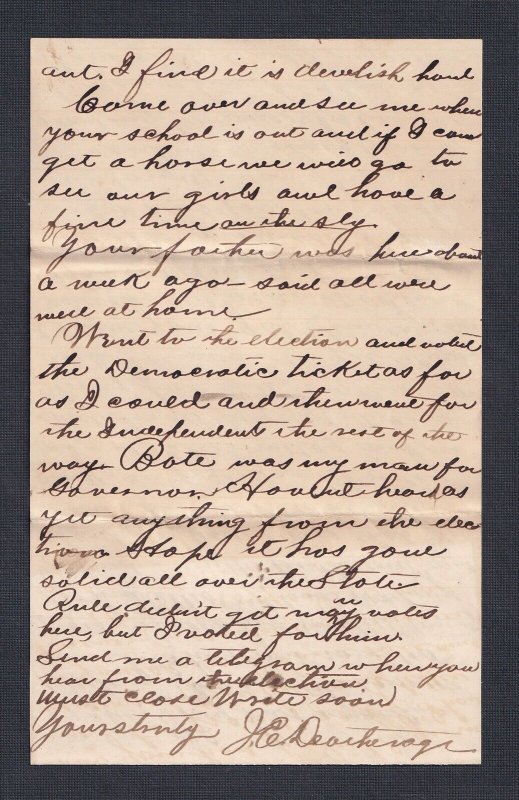 ant. I find it is develish hard
Come over and see me when
your school is out and if I can
get a horse we will go to
see our girls and have a
fine time on the sly.
Your father was here about
a week ago - said all were
well at home.
Went to the election and voted
the Democratic ticket as far
as I could and then went for
the Independent the rest of the
way. Bate was my man for
Governor. Havent heard as
yet anything from the elec
tion. Hope it has gone
solid all over the State
Rule didn't get many votes
here, but I voted for him.
Send me a telegram when you
hear from the election.
Must close Write soon
Yours truly J.E. Deatherage